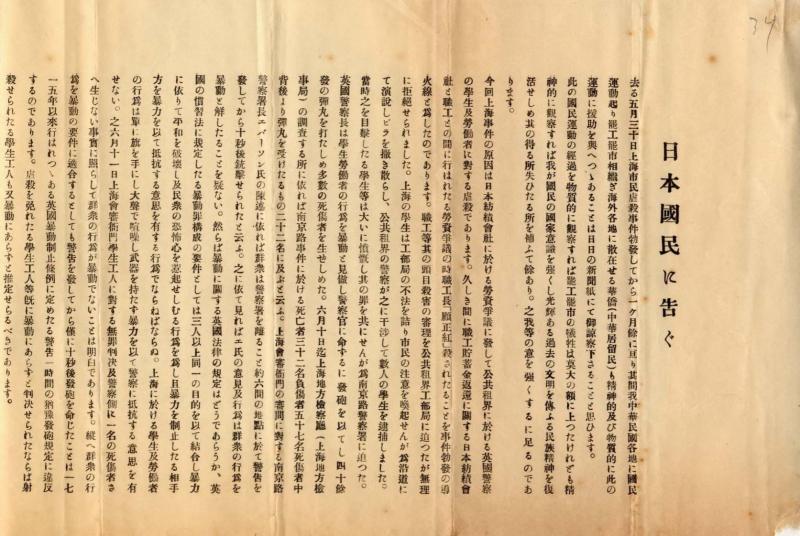 34
日本國民に告ぐ
去る五月三十日上海市民虐殺事件勃發してから一ケ月餘に亘り其間我中華民國各地に國民
運動起り罷工罷市相繼ぎ海外各地に散在せる華僑(中華居留民)も精神的及び物質的に此の
運動に援助を與へつゝあることは日日の新聞紙にて御諒察下さることと思ひます。
此の國民運動の經過を物質的に觀察すれば罷工罷市の犧牲は莫大の額に上つたけれども精
神的に觀察すれば我が國民の國家意識を強くし光輝ある過去の文明を傳ふる民族精神を復
活せしめ其の得る所失ひたる所を補ふて餘あり。之我等の意を強くするに足るのであ
ります。
今回上海事件の原因は日本紡績會社に於ける勞資爭議に發して公共租界に於ける英國警察
の學生及勞働者に對する虐殺であります。久しき間に職工貯蓄金返還に關する日本紡績會
社と職工との間に行はれたる勞資爭議の時職工長顧正紅殺されたることを事件勃發の導
火線と爲したのであります。職工等其の頭目殺害の審理を公共租界工部局に迫つたが無理
に拒絕せられました。上海の學生は工部局の不法を詰り市民の注意を喚起せんが爲沿道に
て演說しビラを撒き散らし、公共租界の警察が之に干涉して數人の學生を逮捕しました。
當時之を目擊したる學生等は大いに憤慨し其の罪を共にせんが爲南京路警察署に迫つた。
英國警察長は學生勞働者の行爲を暴動と見做し警察官に命するに發砲を以てし四十餘
發の彈丸を打たしめ多數の死傷者を生せしめた。六月十日迄上海地方檢察廳(上海地方檢
事局)の調査する所に依れば南京路事件に於ける死亡者三十二名負傷者五十七名死傷者中
背後より彈丸を受けたるもの二十二名に及ぶと云ふ。上海會審衙門の審問に對する南京路
警察署長エバーソン氏の陳述に依れば群衆は警察署を離ること約六間の地點に於て警告を
發してから十秒後銃擊せられたと云ふ。之に依て見ればエ氏の意見及行爲は群衆の行爲を
暴動と解したること疑ない。然らば暴動に關する英國法律の規定はどうであらうか、英
國の慣習法に規定したる暴動罪構成の要件としては三人以上同一の目的を以て結合し暴力
に依りて平和を破壞し及民衆の恐怖心を惹起せしむる行爲を爲し且暴力を制止したる相手
方を暴力を以て抵抗する意思を有する行爲でならねばならぬ。上海に於ける學生及勞働者
の行爲は單に旗を手にし大聲で喧噪し武器を持たず暴力を以て警察に抵抗する意思を有
せない。之六月十一日上海會審衙門學生工人に對する無罪判決及警察側に一名の死傷者さ
へ生じない事實に照らして群衆の行爲が暴動でないことは明白であります。縱へ群衆の行
爲を暴動の要件に適合するとしても警告を發してから僅に十秒後發砲を命じたことは一七
一五年以來行はれつゝある英國暴動制止條例に定めたる警告一時間の猶豫發砲規定に違反
するのであります。虐殺を免れたる學生工人等旣に暴動にあらずと判決せられたならば射
殺せられたる學生工人も又暴動にあらずと推定せらるべきであります。